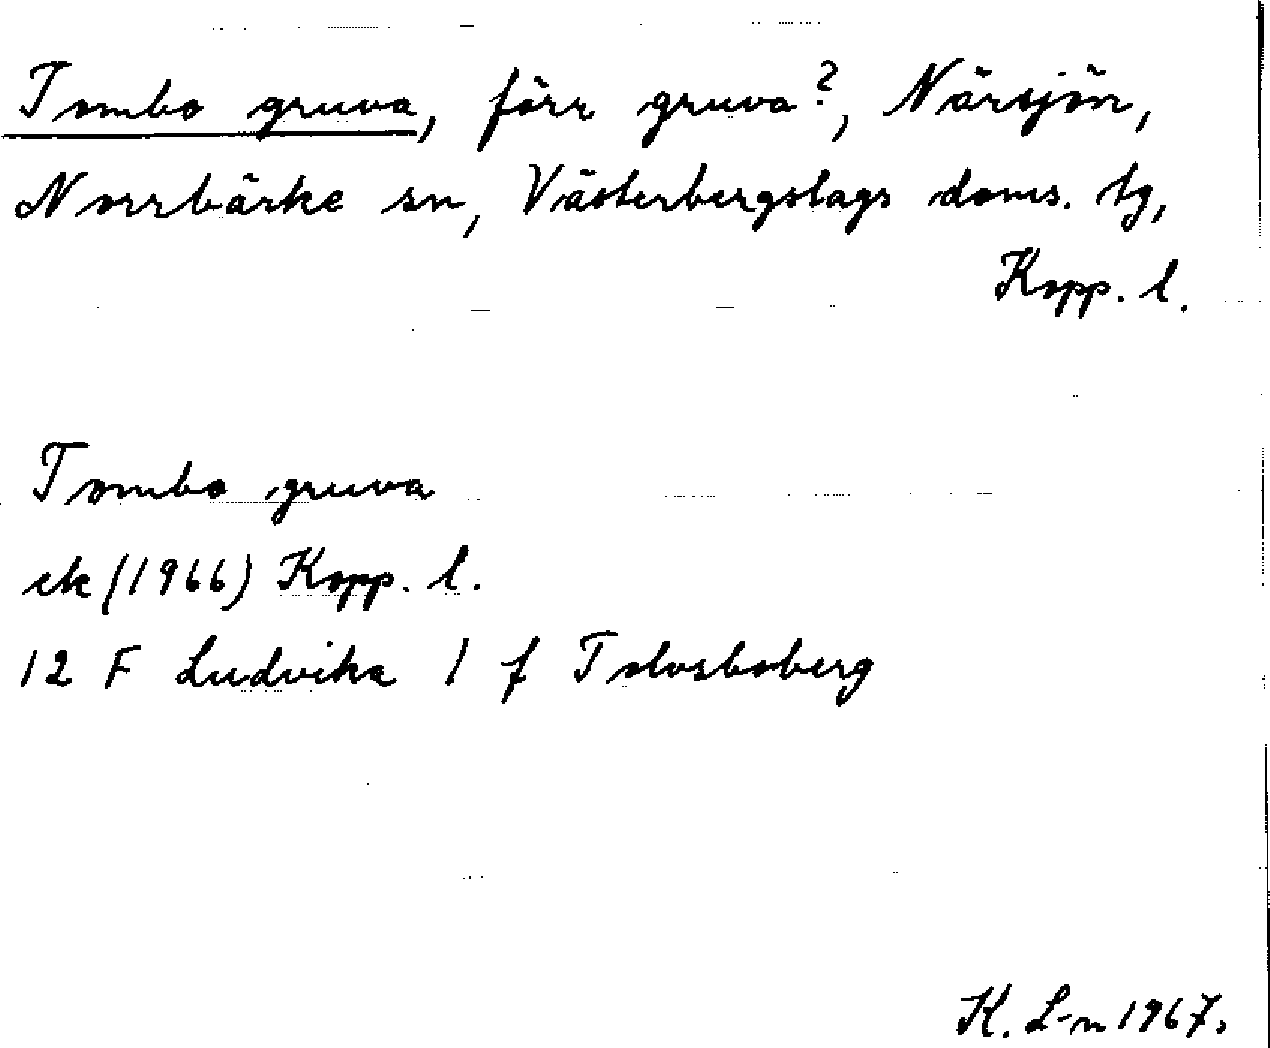 Tombo gruva, förr gruva?, Närsjön,
Norrbärke sn, Västerbergslags doms. tg,
Kopp. l.
Tombo gruva
ek (1966) Kopp. l.
12 F Ludvika 1 f Tolvsboberg
K. L-n 1967.